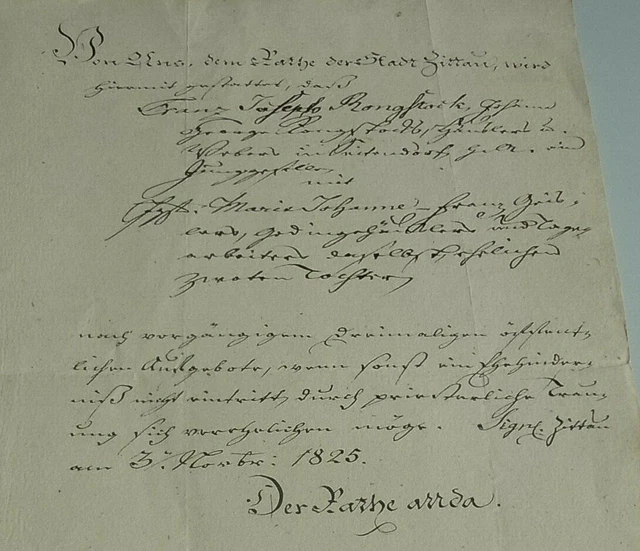 Von Uns, dem Rathe der Stadt Zittau, wird
hiermit gestattet, daß
Franz Joseph Rongstock, Johann
George Rongstocks, Häuslers u.
Webers in Seitendorf
Junggesellen
mit
Jgfr. Marie Johanne Franz
lers, Gedingehäuslers und Tage-
arbeiters daselbst, ehelichen
zweoten Tochter,
nach vorgängigem dreimaligen öffent-
lichen Aufgebote, wenn sonst ein Ehehinder-
niß nicht eintritt, durch priesterliche Trau-
ung sich verehelichen möge. Sign. Zittau
am 3. Novbr: 1825.
Der Rathe allda.